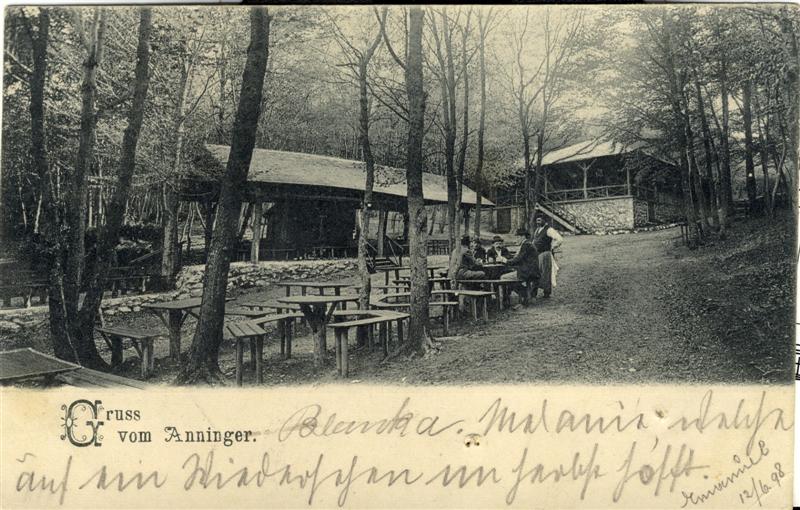 Gruss
vom Anninger. Blanka. Melanie welche
auf ein Wiedersehen im herbst hofft.
Emanuel
12/6.98